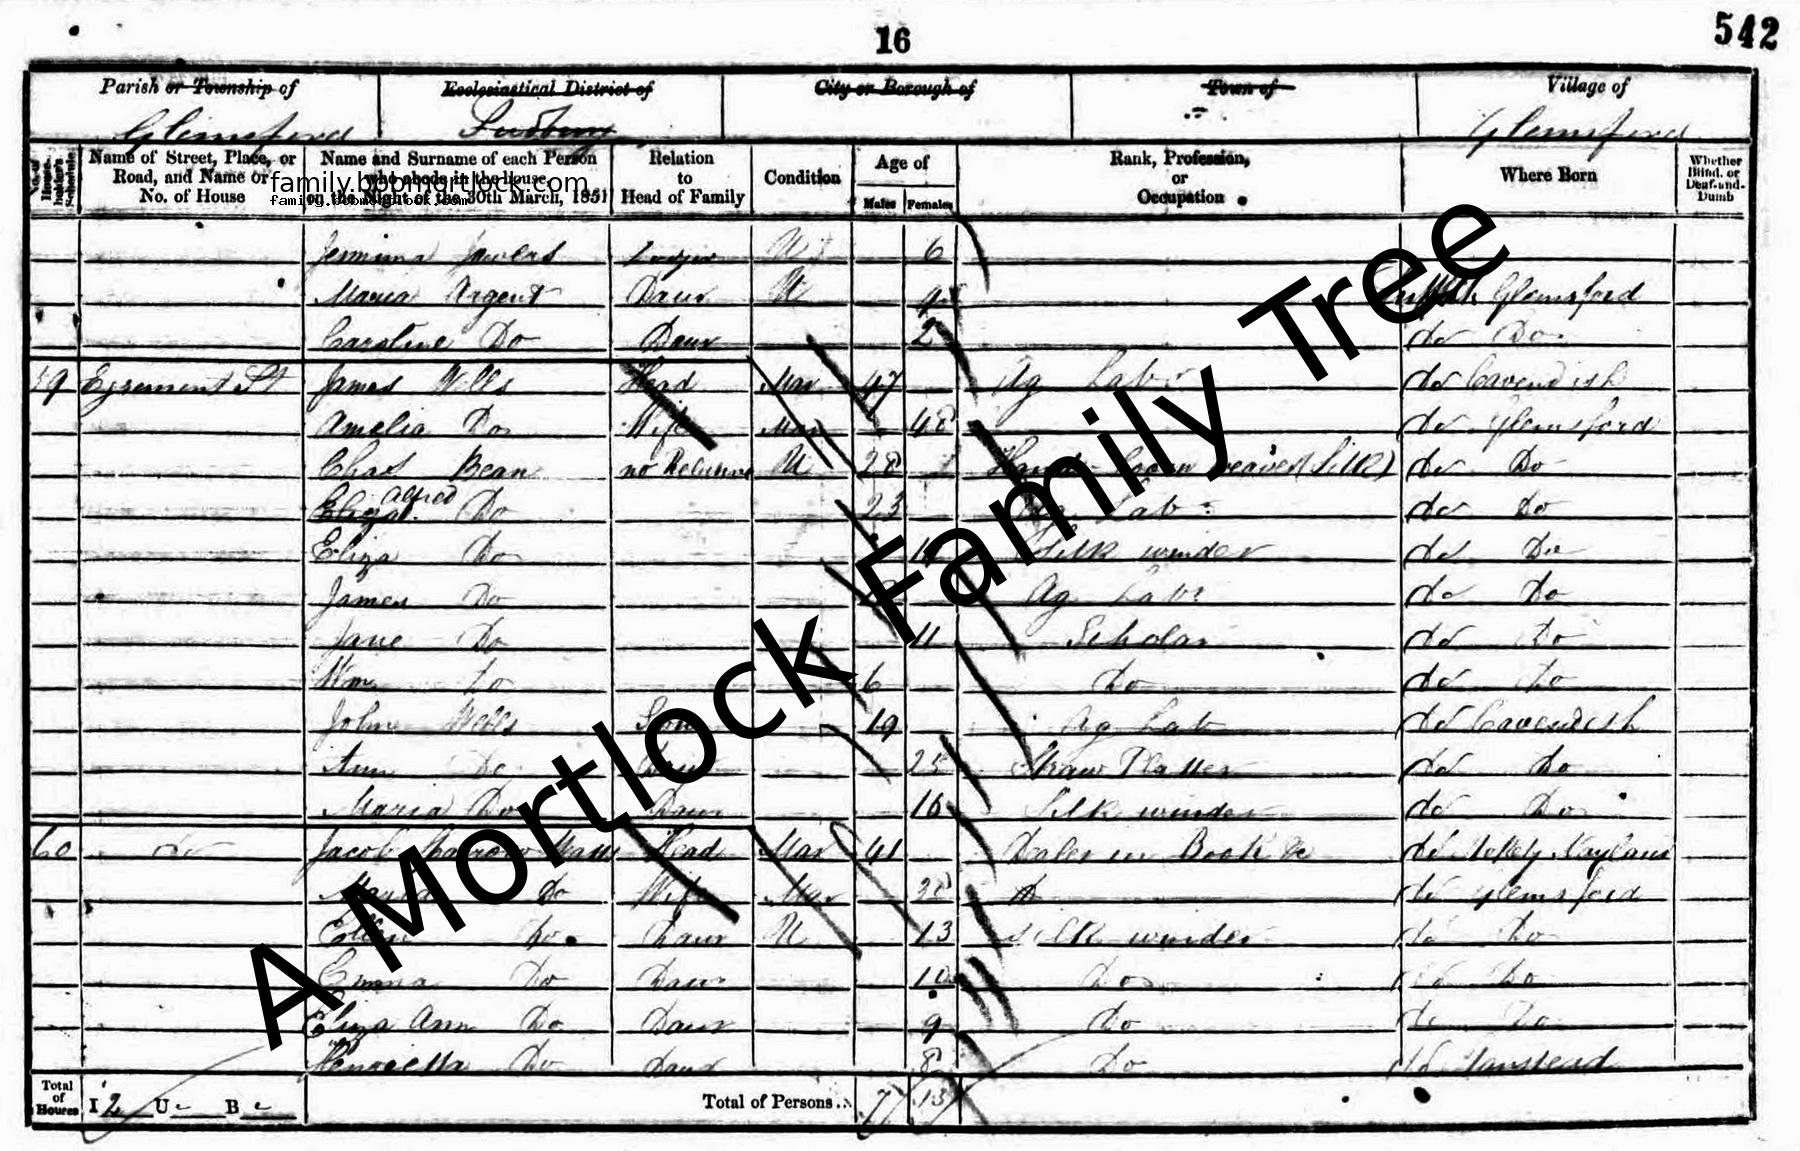 542
16
Parish or Township of Ecclesiastical District of City or Borough of Town of Village of
Glemsford Sudbury Glemsford
No. of House-holder's Schedule Name of Street, Place, or Road, and Name or No. of House Name and Surname of each Person who abode in the house, on the Night of the 30th March, 1851 Relation to Head of Family Condition Age of Males Females Rank, Profession, or Occupation Where Born Whether Blind, or Deaf-and-Dumb
family.bobmortlock.com
family.bobmortlock.com
Jemima Lodger U 6
Maria Argent Daur U 9 Suffolk Glemsford
Caroline Do Daur 2 do Do
59 Egremont St James Wells Head Mar 47 Ag Labr do Cavendish
Amelia Do Wife Mar 48 do Glemsford
Chas Bean no Relation U 28 Hand-loom weaver (Silk) do Do
Eliza Alfred Do 23 Lab do Do
Eliza Do Silk winder do Do
James Do Ag Labr do Do
Jane Do 11 Scholar do Do
Wm Do 6 Do do Do
John Wells Son 19 Ag Lab do Cavendish
Ann Do Daur 25 Straw Platter do Do
Maria Do Daur 16 Silk winder do Do
60 do Jacob Head Mar 41 Dealer in Book &c do Nayland
Do Wife Mar 38 do Glemsford
Ellen Do Daur U 13 Silk winder do Do
Emma Do Daur 10 Do do Do
Eliza Ann Do Daur 9 Do do Do
Henrietta Do Daur 8 Do do
Total of Houses I 2 U B Total of Persons 7 13
A Mortlock Family Tree